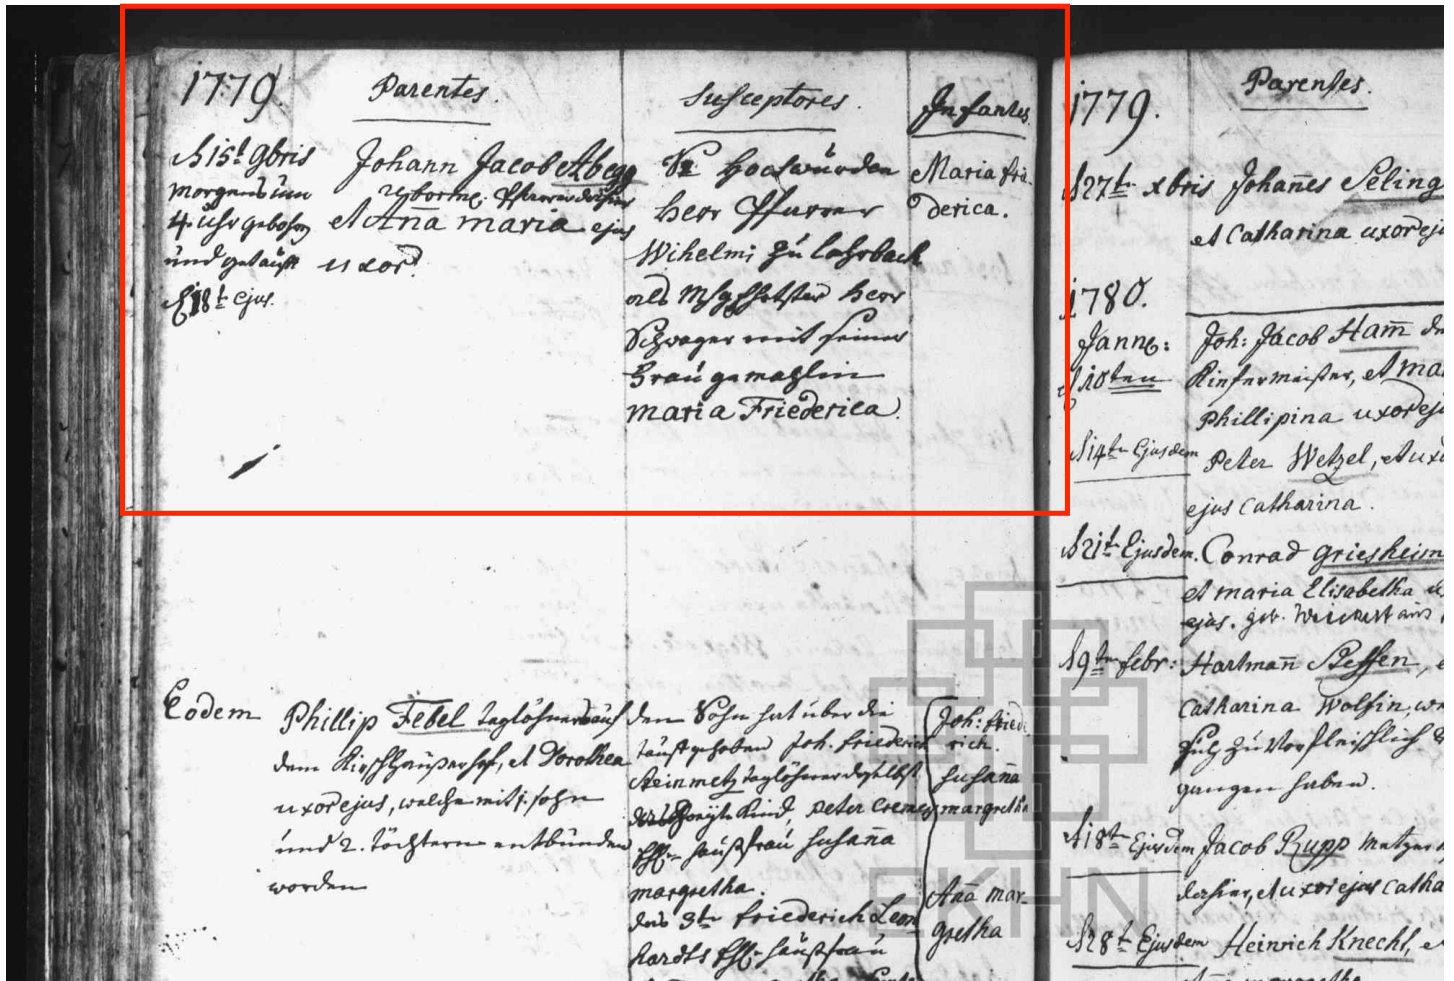 1779.
Parentes.
Susceptores.
Infantes.
d 15t. 9bris
morgens um
4. Uhr gebohrn
und getauft
d 18t ejus.
Johann Jacob Abegg
et Ana maria ejus
uxor.
Hochwürden
Herr Pfarrer
Wilhelmi zu Lohrbach
als Herr
Schwager mit seiner
Frau gemahlin
maria Friederica.
Maria fri-
derica.
Eodem
Phillip Febel taglöhner auf
dem et Dorothea
uxor ejus, welche mit 1. sohn
und 2. töchtern entbunden
worden
den Sohn hat über die
tauf gehoben Joh. friederich
Steinmetz taglöhner daselbst
zweyte Kind, peter Cremers
haußfrau susana
margretha.
das 3te friederich Leon
hardts haußfrau
Joh: friede
rich.
susana
margretha
Ana mar-
gretha
1779.
Parentes.
d 27t xbris
Johanes Seling
et Catharina uxor ejus
1780.
d 10ten
Joh: Jacob Ham
Kiefermeister, et Ma
Phillipina uxor ej
d 14t Ejusdem
Peter Wetzel, et ux
ejus Catharina.
d 21t Ejusdem.
Conrad Griesheim
et maria Elisabetha u
ejus. geb. aus
d 9t febr:
Hartman Steffen, e
Catharina Wolfin, we
sich zu vor fleischlich
gangen haben.
d 18t Ejusdem
Jacob Rupp metzer
dahier, et uxor ejus Catha
d 28t Ejusdem
Heinrich Knecht, e
EKHN